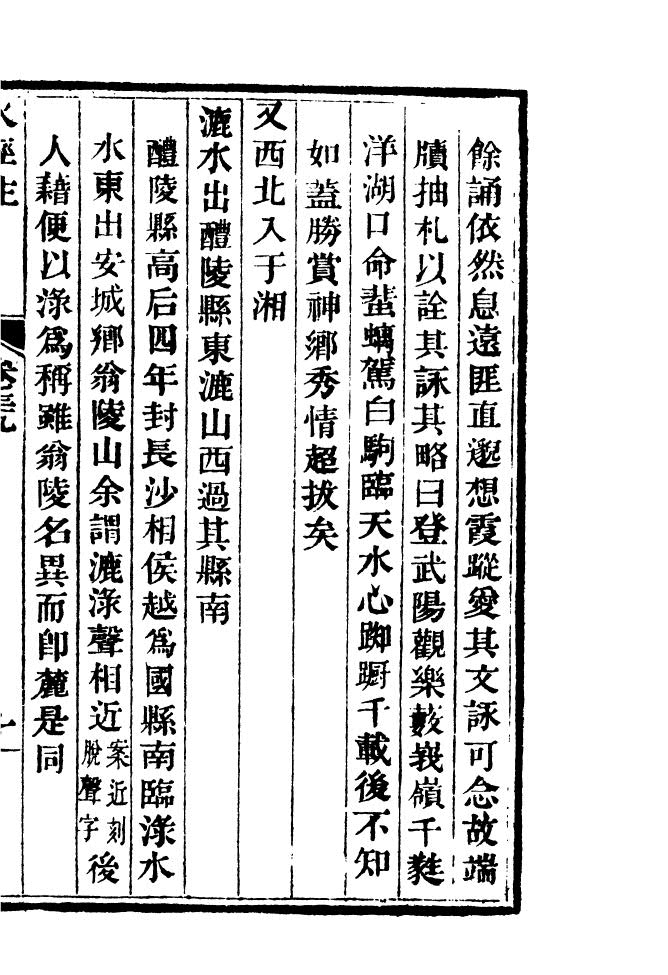 餘誦依然息遠匪直邈想霞蹤愛其文詠可念故端
牘抽札以詮其詠其略曰登武陽觀樂藪峩嶺千蕤
洋湖口命蜚螭駕白駒臨天水心踟躕千載後不知
如蓋勝賞神鄉秀情超拔矣
又西北入于湘
漉水出醴陵縣東漉山西過其縣南
醴陵縣高后四年封長沙相侯越爲國縣南臨淥水
水東出安城鄉翁陵山余謂漉淥聲相近案近刻脫聲字後
人藉便以淥爲稱雖翁陵名異而卽麓是同
水經注
卷三九